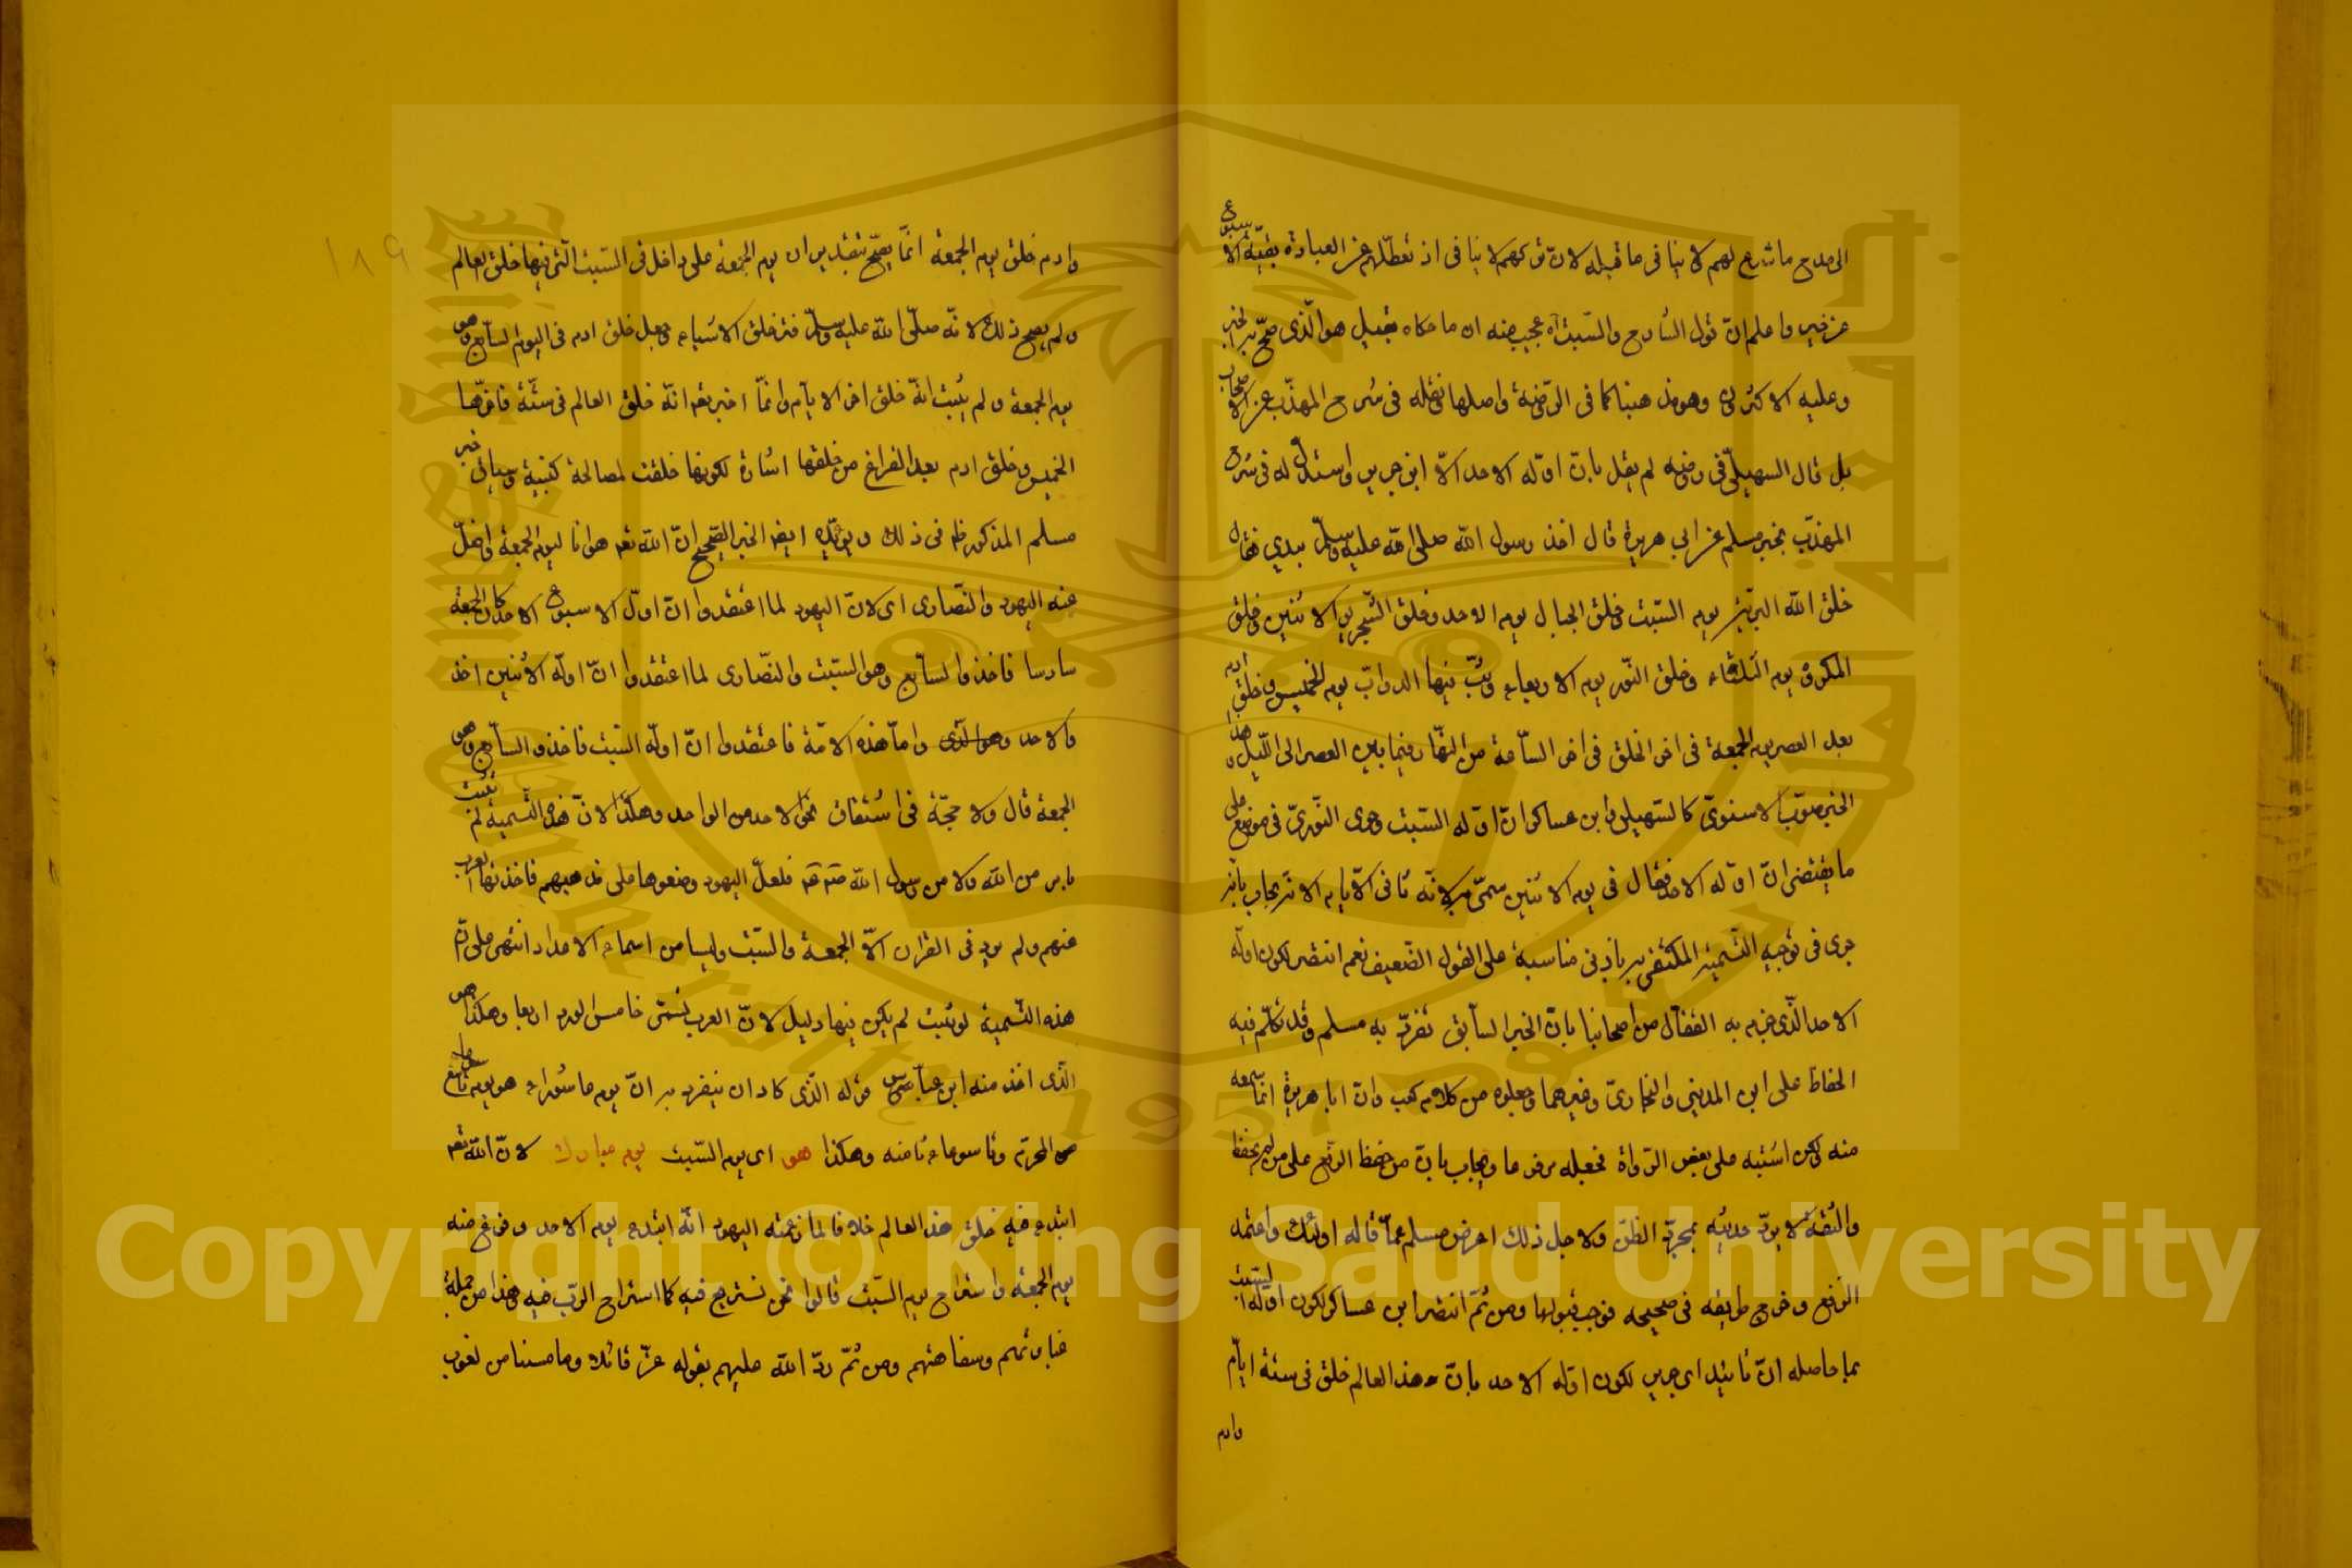 الى مدح ما شرع لهم لا ينافى ما قبله لان تركهم لا ينافى اذ تعطلهم عن العبادة بقية الاسبوع
عن خير واعلم ان قول الشارح والسبت آه عجيب منه ان ما حكاه بقيل هو الذى صح به الخبر
وعليه الاكثرون وهو مذهبنا كما فى الروضة واصلها نقله فى شرح المهذب عن الاصحاب
بل قال السهيلى فى روضه لم يقل بان اوله الاحد الا ابن جرير واستدل له فى شرح
المهذب بخبر مسلم عن ابى هريرة قال اخذ رسول الله صلى الله عليه وسلم بيدي فقال
خلق الله التربة يوم السبت وخلق الجبال يوم الاحد وخلق الشجر يوم الاثنين وخلق
المكروه يوم الثلثاء وخلق النور يوم الاربعاء وبث فيها الدواب يوم الخميس وخلق ادم
بعد العصر يوم الجمعة فى اخر الخلق فى اخر الساعة من النهار فيما بين العصر الى الليل ولهذا
الخبر صوب الاسنوى كالسهيلى وابن عساكر ان اوله السبت وجرى النووى فى موضع على
ما يقتضى ان اوله الاحد فقال فى يوم الاثنين سمى به لانه ثانى الايام الا انه يجاب بانه
جرى فى توجيه التسمية المكتفى به بادنى مناسبة على القول الضعيف نعم انتصر لكون اوله
الاحد الذى جزم به القفال من اصحابنا بان الخبر السابق تفرد به مسلم وقد تكلم فيه
الحفاظ على ابن المدينى والبخارى وغيرهما وجعلوه من كلام كعب وان ابا هريرة انما سمعه
منه لكن اشتبه على بعض الرواة فجعله مرفوعا ويجاب بان من حفظ الرفع على من لم يحفظ
والثقة لا يرد حديثه بمجرد الظن ولاجل ذلك اعرض مسلم عما قاله اولئك واعتمد
الرفع وخرج طريقه فى صحيحه فوجب قبولها ومن ثم انتصر ابن عساكر لكون اوله السبت
بما حاصله ان تأييد ابى جرير لكون اوله الاحد بان هذا العالم خلق فى ستة ايام
وادم
١٨٩
وادم خلق يوم الجمعة انما يصح بتقدير ان يوم الجمعة على داخل فى الستة التى فيها خلق العالم
ولم يصح ذلك لانه صلى الله عليه وسلم فسر خلق الاشياء وجعل خلق ادم فى اليوم السابع وهو
يوم الجمعة ولم يثبت انه خلق اخر الايام وانما اخبر تعه انه خلق العالم فى ستة فاخرها
الخميس وخلق ادم بعد الفراغ من خلقها اشارة لكونها خلقت لمصالحه كبنيه وسياق خبر
مسلم المذكور ظه فى ذلك ويؤيده ايضا الخبر الصحيح ان الله تعه هدانا ليوم الجمعة واضل
عنه اليهود والنصارى اى لان اليهود لما اعتقدوا ان اول الاسبوع الاحد كان الجمعة
سادسا فاخذوا السابع وهو السبت والنصارى لما اعتقدوا ان اوله الاثنين اخذ
والاحد وهو الذى واما هذه الامة فاعتقدوا ان اوله السبت فاخذوا السابع وهو
الجمعة قال ولا حجة فى اشتقاق نحو الاحد من الواحد وهكذا لان هذه التسمية لم تثبت
بامر من الله ولا من رسول الله فلعل اليهود وضعوها على مذهبهم فاخذتها العرب
عنهم ولم يرد فى القران الا الجمعة والسبت وليسا من اسماء الاعداد انتهى على ان
هذه التسمية لو ثبتت لم يكن فيها دليل لان العرب تسمى خامس الورد اربعا وهكذا وهو
الذى اخذ منه ابن عباس قوله الذى كاد ان ينفرد به ان يوم عاشوراء هو يوم تاسع
من المحرم وتاسوعاء ثامنه وهكذا هو اى يوم السبت يوم مبارك لان الله تعه
ابتدء فيه خلق هذا العالم خلافا لما زعمته اليهود انه ابتدء يوم الاحد وفرغ منه
يوم الجمعة واستراح يوم السبت قالوا نحن نستريح فيه كما استراح الرب فيه وهذا من جملة
غباوتهم وسفاهتهم ومن ثم رد الله عليهم بقوله عز قائلا وما مسنا من لغوب
Copyright © King Saud University
1957